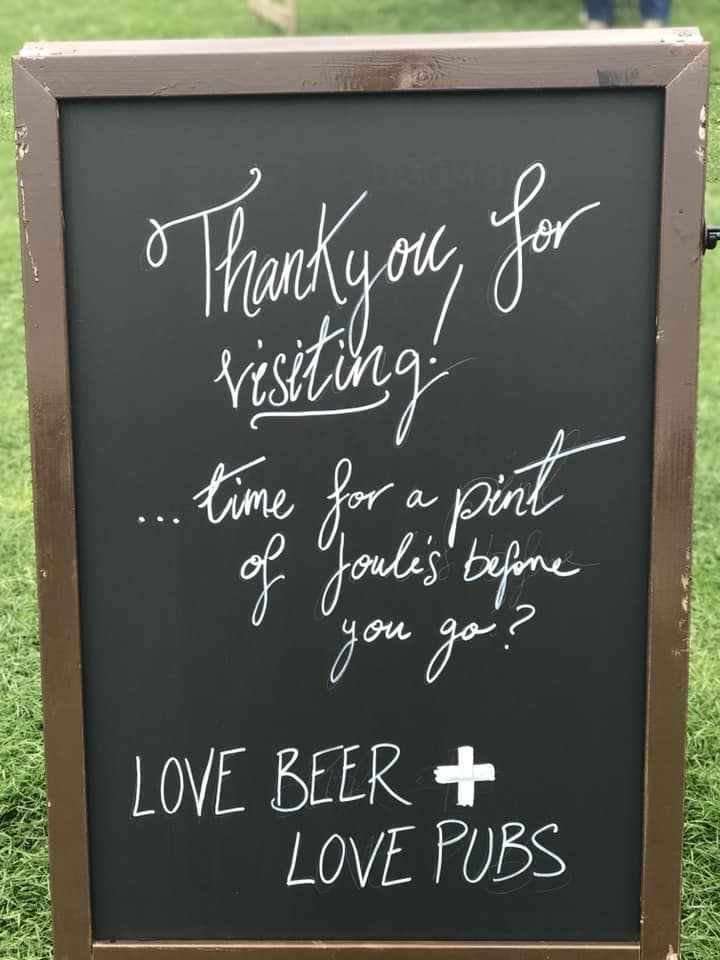 Thankyou for
visiting!
... time for a pint
of Joule's before
you go?
LOVE BEER +
LOVE PUBS